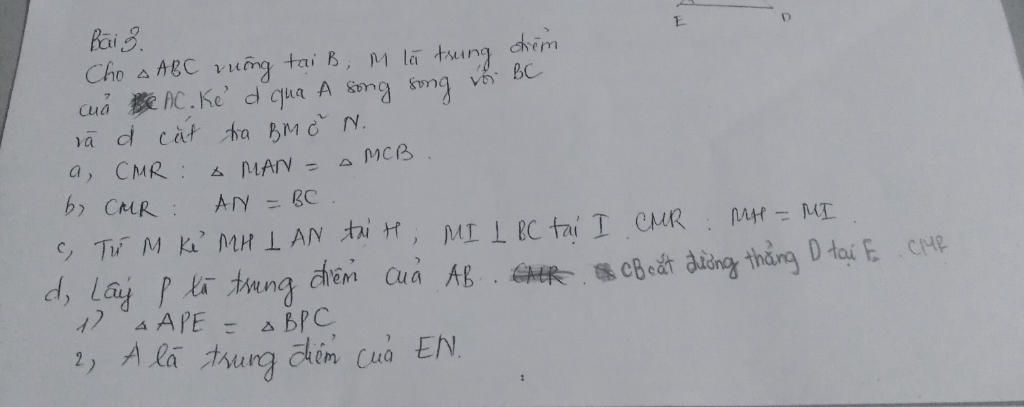 E D
Bài 3.
Cho △ ABC vuông tại B, M là trung điểm
của AC. Kẻ d qua A song song với BC
và d cắt tia BM ở N.
a, CMR : △ MAN = △ MCB.
b, CMR : AN = BC.
c, Từ M kẻ MH ⊥ AN tại H, MI ⊥ BC tại I. CMR : MH = MI.
d, Lấy P là trung điểm của AB. CB cắt đường thẳng D tại E. CMR
1) △ APE = △ BPC
2, A là trung điểm của EN.